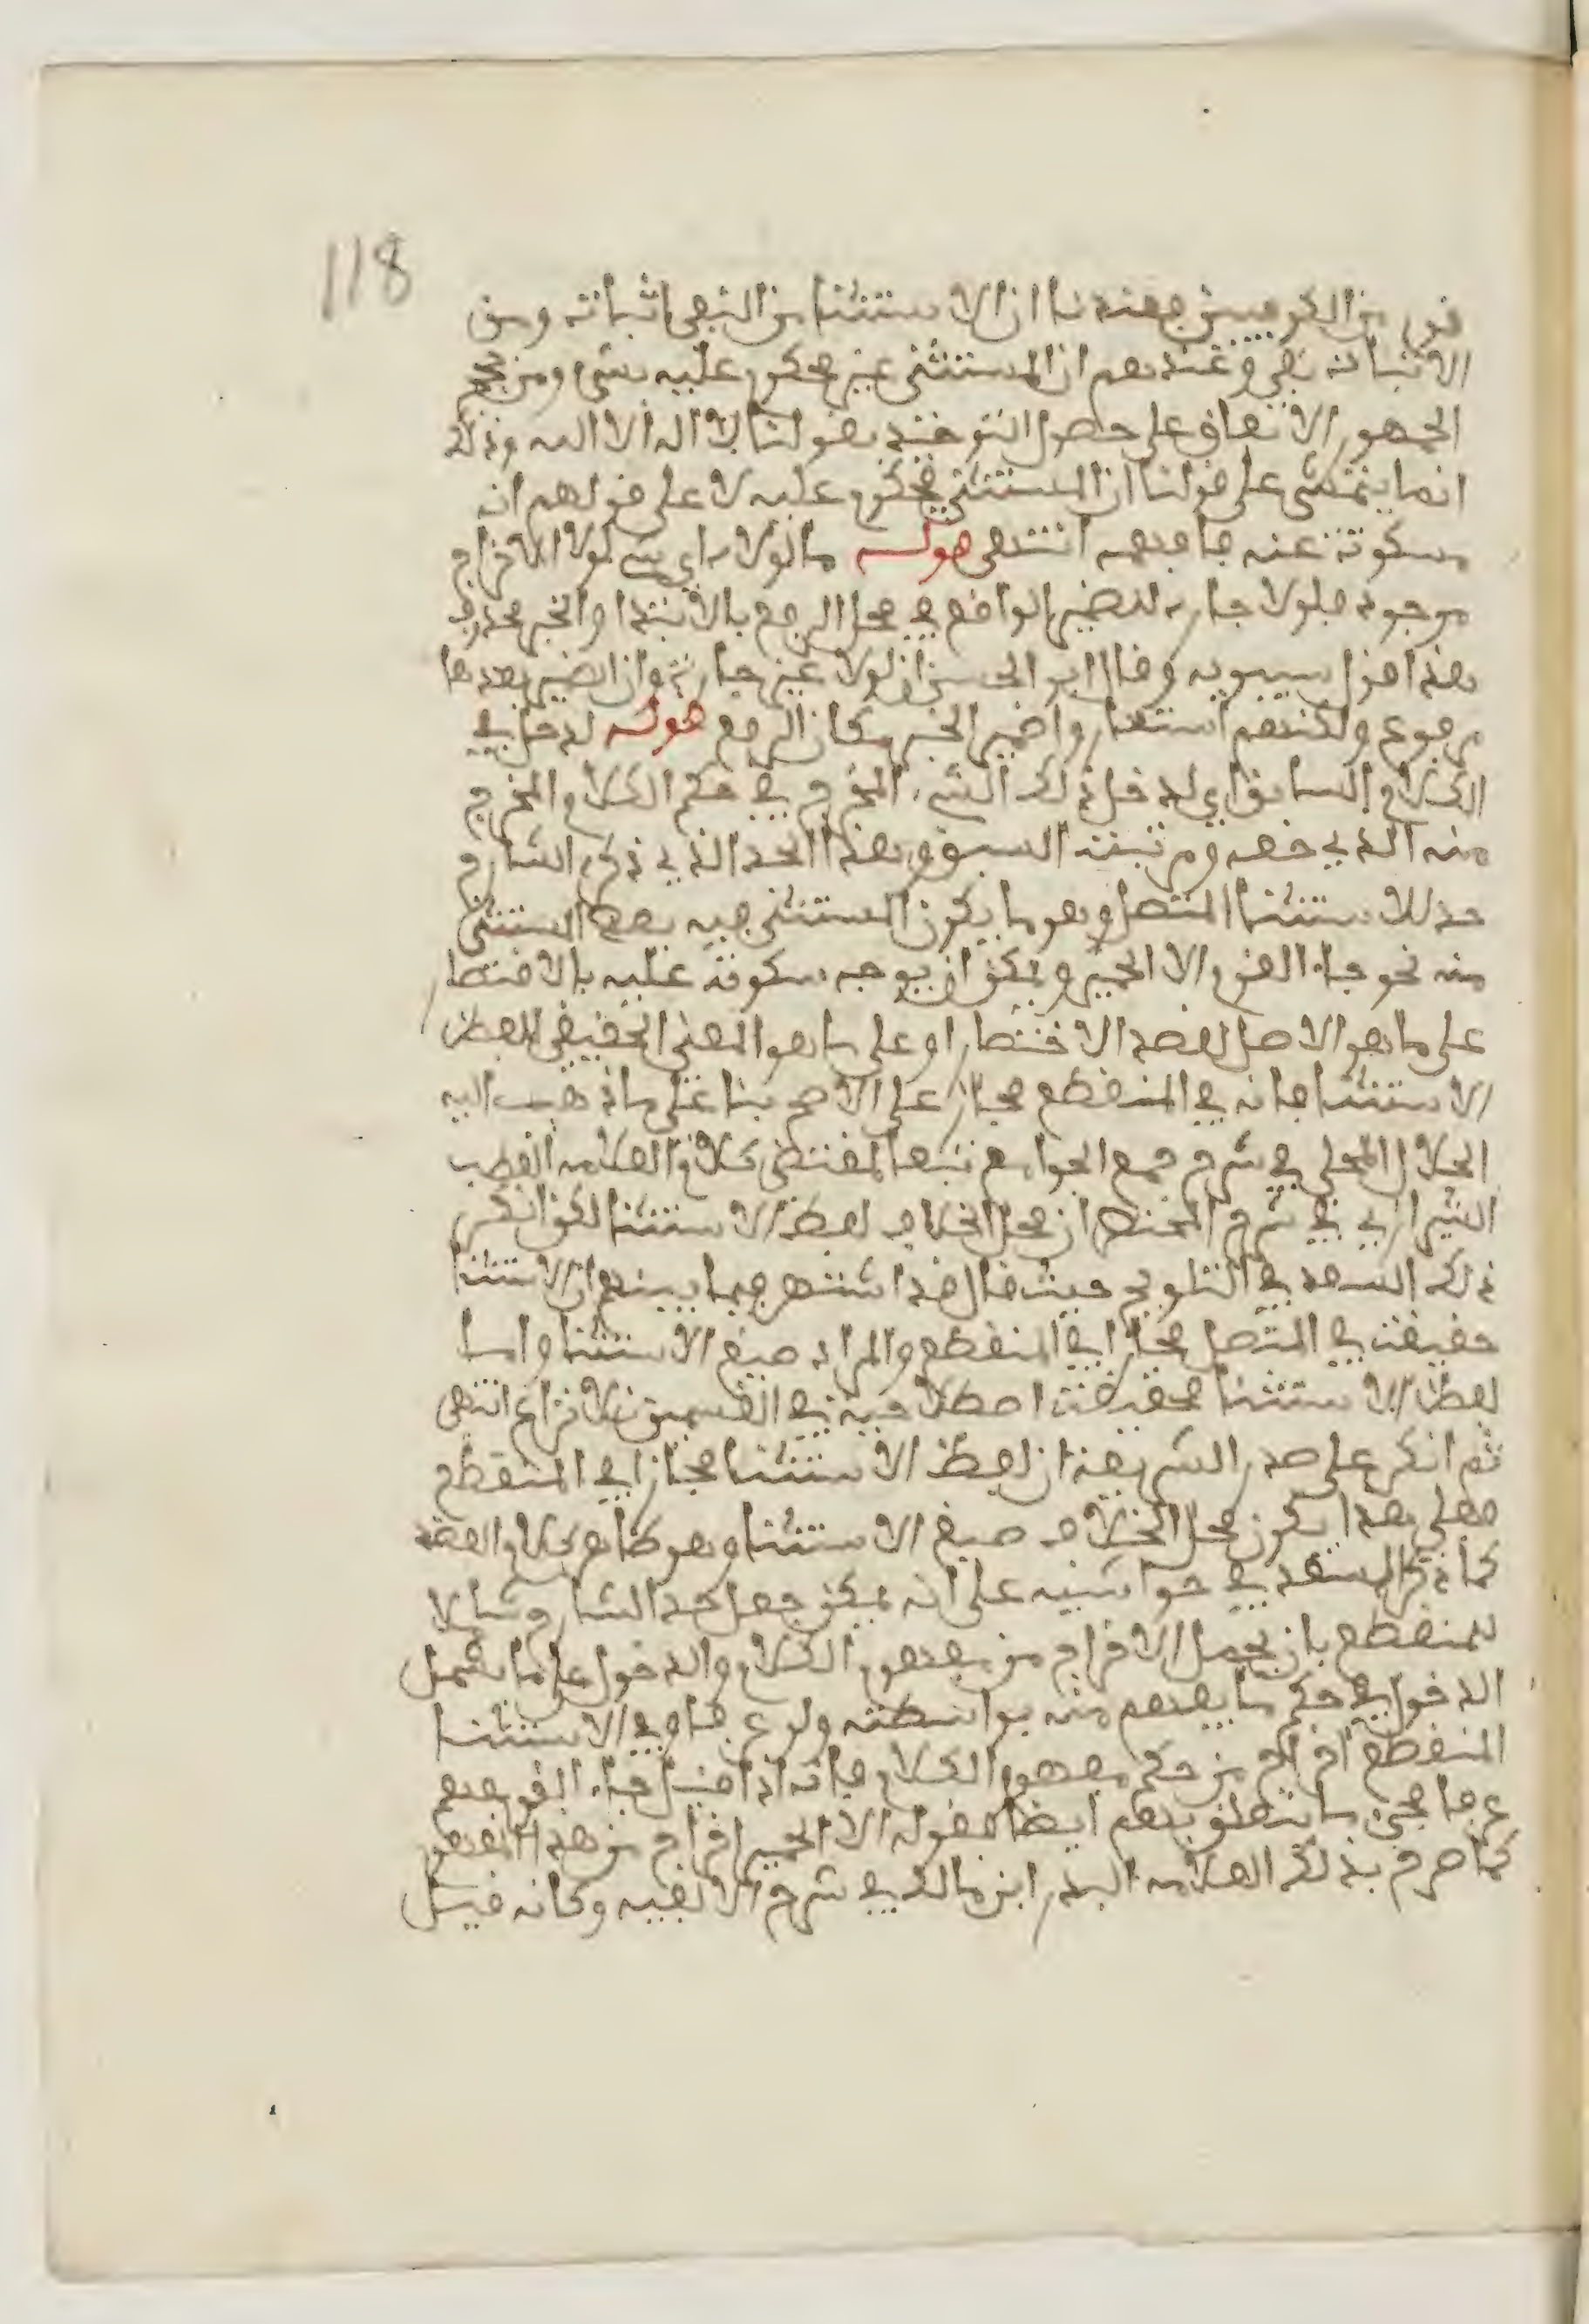 118
قوم من الكوفيين فعندنا ان الاستثنا من النفي اثبات ومن
الاثبات نفي وعندهم ان المستثنى غير محكوم عليه بشي ومن حجج
الجمهور الاتفاق على حصول التوحيد بقولنا لا اله الا الله وذلك
انما يتمشى على قولنا ان المستثنى محكوم عليه لا على قولهم انه
مسكوت عنه فافهمه انتهى قوله ما لولاه اي شي لولا الاخراج
موجود فلولا جارة للضمير الواقع في محل الرفع بالابتدا والخبر محذوف
هذا قول سيبويه وقال ابو الحسن ان لولا غير جارة وان الضمير بعدها
مرفوع ولكنهم استعاروا ضمير الجر مكان الرفع قوله لدخل في
الكلام السابق اي لدخل ذلك الشي المخرج في حكم الكلام المخرج
منه الذي حقه ومرتبته السبق وهذا الحد الذي ذكره الشارح
حد للاستثنا المتصل وهو ما يكون المستثنى فيه بعض المستثنى
منه نحو جا القوم الا الحمير ويمكن ان يوجه سكوته عليه بالاقتصار
على ما هو الاصل لقصد الاختصار او على ما هو المعنى الحقيقي للفظ
الاستثنا فانه في المنقطع مجاز على الاصح بنا على ما ذهب اليه
الجلال المحلي في شرح جمع الجوامع تبعا لمقتضى كلام العلامه القطب
الشيرازي في شرح المختصر ان محل الخلاف لفظ الاستثنا لكن انكر
ذلك السعد في التلويح حيث قال قد اشتهر فيما بينهم ان الاستثنا
حقيقة في المتصل مجاز في المنقطع والمراد صيغ الاستثنا واما
لفظ الاستثنا فحقيقة اصطلاحية في القسمين بلا نزاع انتهى
ثم انكر على صدر الشريعة ان لفظ الاستثنا مجاز في المنقطع
فعلى هذا يكون محل الخلاف صيغ الاستثنا وهو ظاهر كلام العضد
كما ذكر السعد في حواشيه على انه يمكن جعل حد الشارح شاملا
للمنقطع بان يحمل الاخراج من مفهوم الكلام والدخول على ما يشمل
الدخول في حكم ما يفهم منه بواسطته ولو عرفا وفي الاستثنا
المنقطع اخراج من حكم مفهوم الكلام فانه اذا قيل جا القوم يفهم
عرفا مجي ما يتعلق بهم ايضا فقوله الا الحمير اخراج من هذا المفهوم
كما صرح بذلك العلامه البدر ابن مالك في شرح الالفيه وكانه قيل